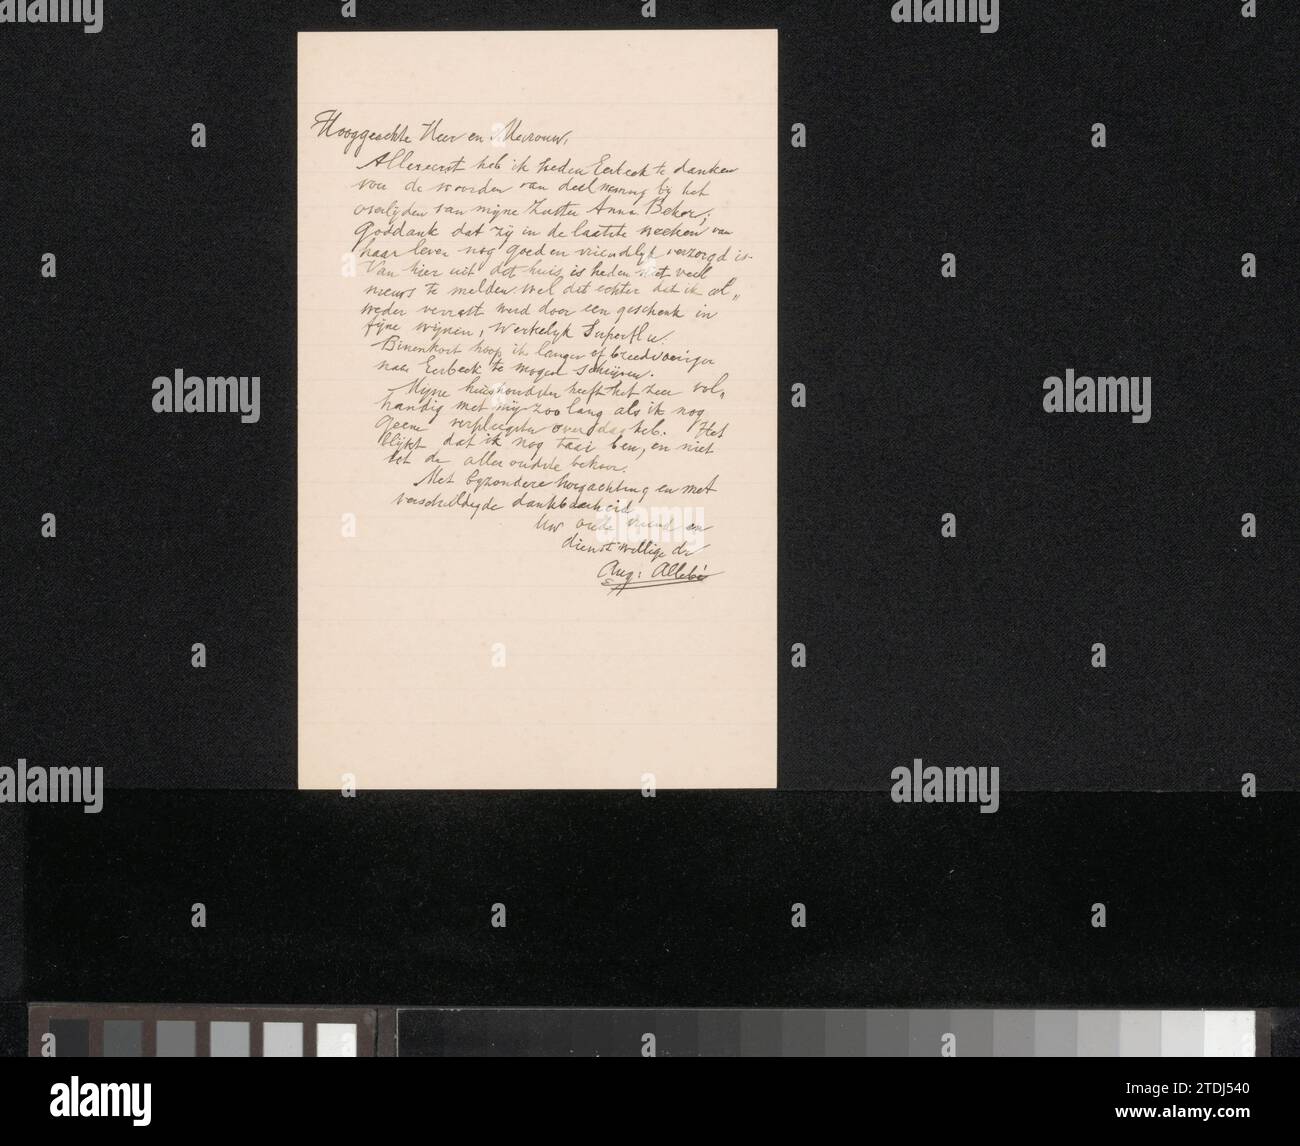 Hooggeachte Heer en Mevrouw,
Allereerst heb ik heden Eerbeek te danken
voor de woorden van deelneming bij het
overlijden van mijne Zuster Anna Beker;
Goddank dat zij in de laatste weeken van
haar leven nog goed en vriendlijk verzorgd is.
Van hier uit dit huis is heden niet veel
nieuws te melden. Wel dit echter dat ik al„
weder verrast werd door een geschenk in
fijne wijnen, werkelijk Superflu.
Binenkort hoop ik langer of breedvoeriger
naar Eerbeek te mogen schrijven.
Mijne huishoudster heeft het zeer vol„
handig met mij zoo lang als ik nog
geene verpleegster overdag heb. Het
blijkt dat ik nog taai ben, en niet
tot de alleroudste behoor.
Met bijzondere hoogachting en met
verschuldigde dankbaarheid
Uw oude vriend en
dienstwillige dr
Aug: Allebé
alamy
Image ID: 2TDJ540
www.alamy.com